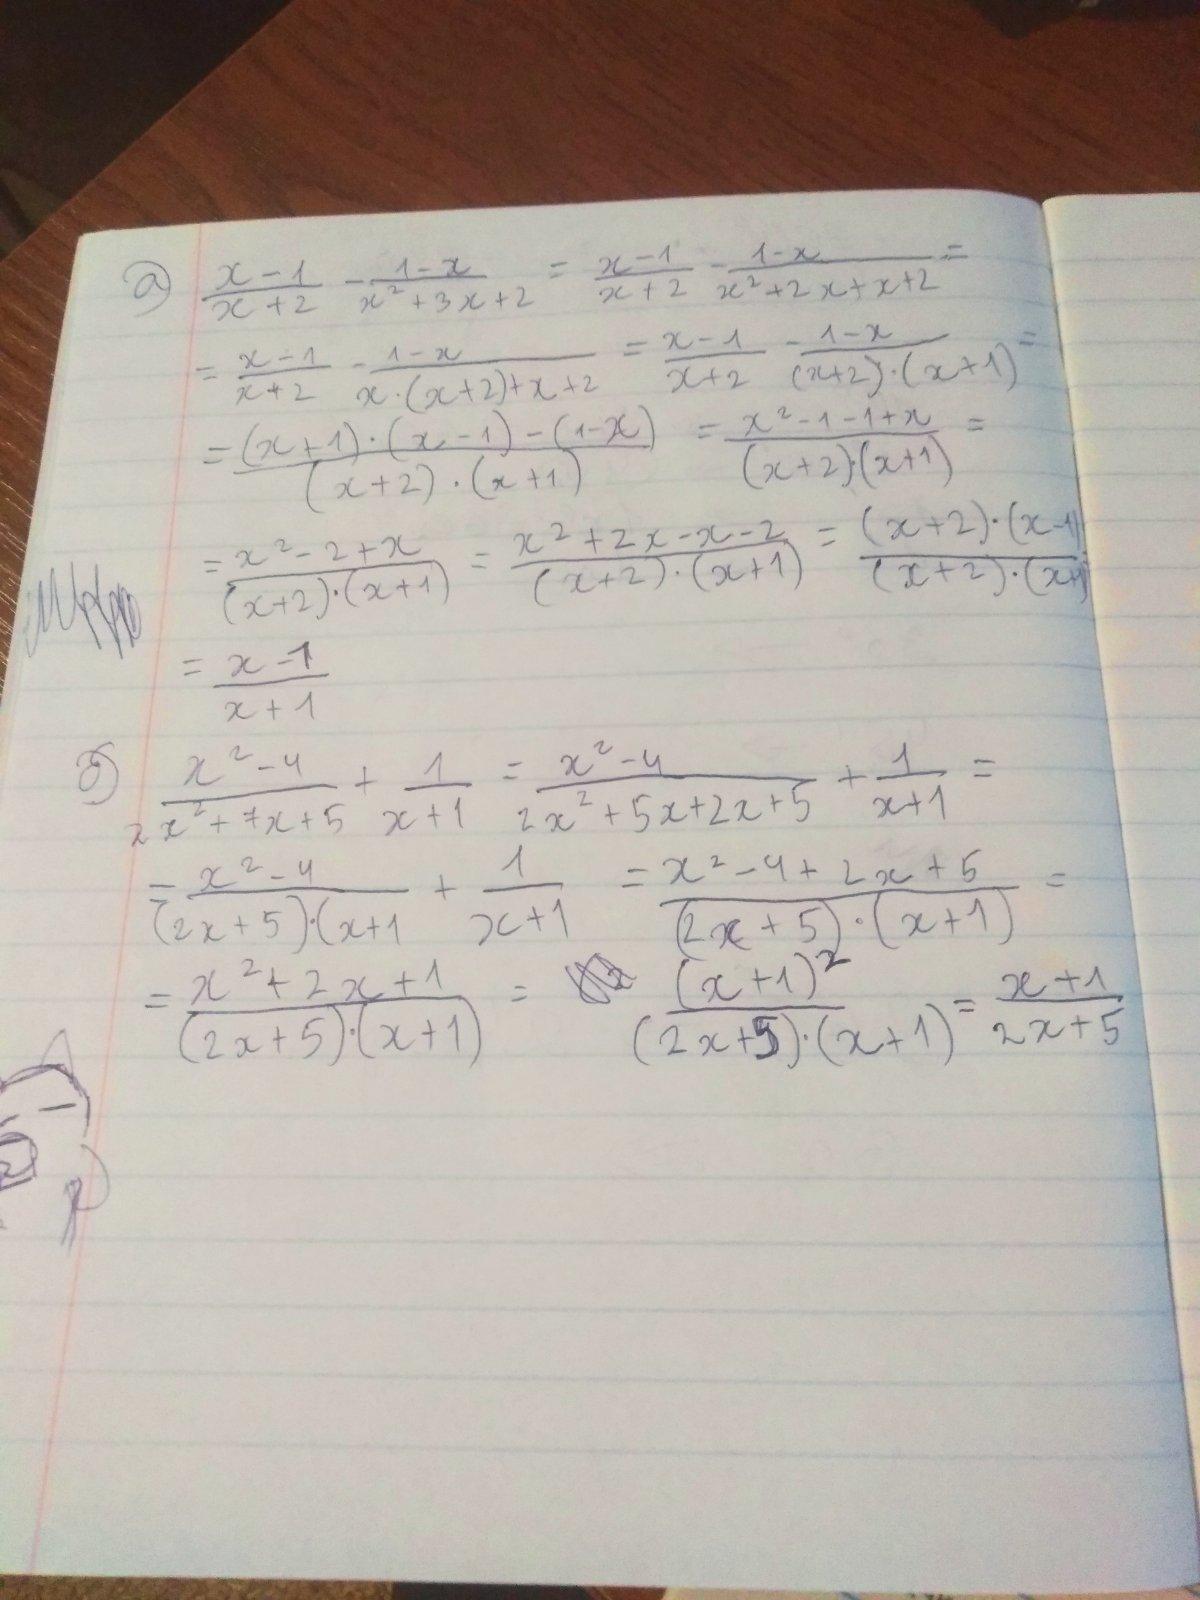 а) (x-1)/(x+2) - (1-x)/(x²+3x+2) = (x-1)/(x+2) - (1-x)/(x²+2x+x+2) =
= (x-1)/(x+2) - (1-x)/(x·(x+2)+x+2) = (x-1)/(x+2) - (1-x)/((x+2)·(x+1)) =
= ((x+1)·(x-1)-(1-x))/((x+2)·(x+1)) = (x²-1-1+x)/((x+2)·(x+1)) =
= (x²-2+x)/((x+2)·(x+1)) = (x²+2x-x-2)/((x+2)·(x+1)) = ((x+2)·(x-1))/((x+2)·(x+1))
= (x-1)/(x+1)
б) (x²-4)/(2x²+7x+5) + 1/(x+1) = (x²-4)/(2x²+5x+2x+5) + 1/(x+1) =
= (x²-4)/((2x+5)·(x+1) + 1/(x+1) = (x²-4+2x+5)/((2x+5)·(x+1)) =
= (x²+2x+1)/((2x+5)·(x+1)) = (x+1)²/((2x+5)·(x+1)) = (x+1)/(2x+5)